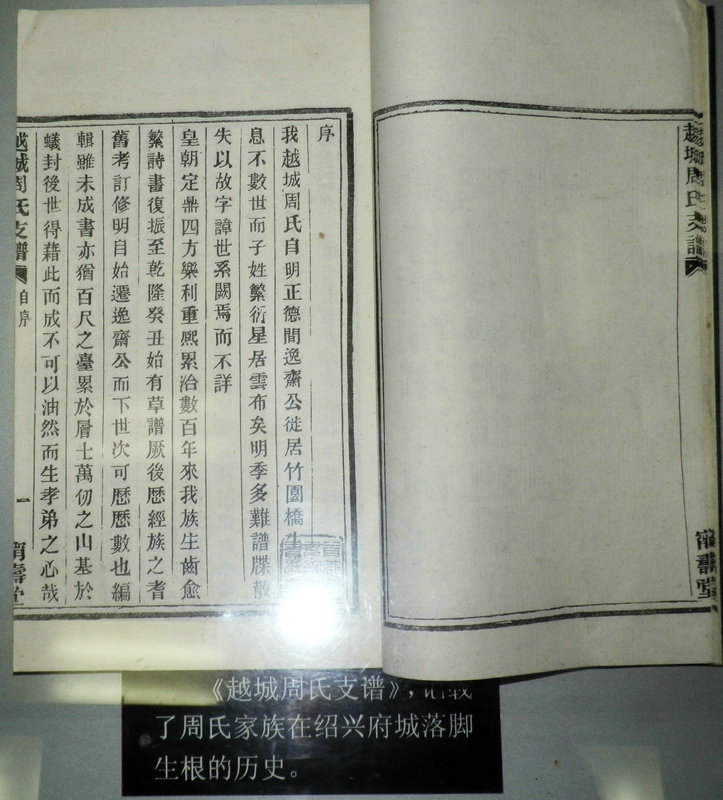 越城周氏支譜
甯壽堂
序
我越城周氏自明正德間逸齋公徙居竹園橋生
息不數世而子姓繁衍星居雲布矣明季多難譜牒散
失以故字諱世系闕焉而不詳
皇朝定鼎四方樂利重熙累治數百年來我族生齒愈
繁詩書復振至乾隆癸丑始有草譜厥後歷經族之耆
舊考訂修明自始遷逸齋公而下世次可歷歷數也編
輯雖未成書亦猶百尺之臺累於層土萬仞之山基於
蟻封後世得藉此而成不可以油然而生孝弟之心哉
越城周氏支譜
自序
一
甯壽堂
《越城周氏支谱》，记载
了周氏家族在绍兴府城落脚
生根的历史。